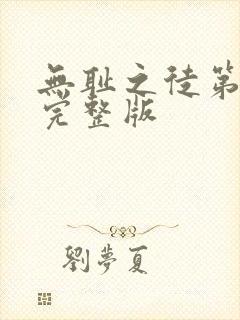 無耻之徒第
完整版
劉夢夏